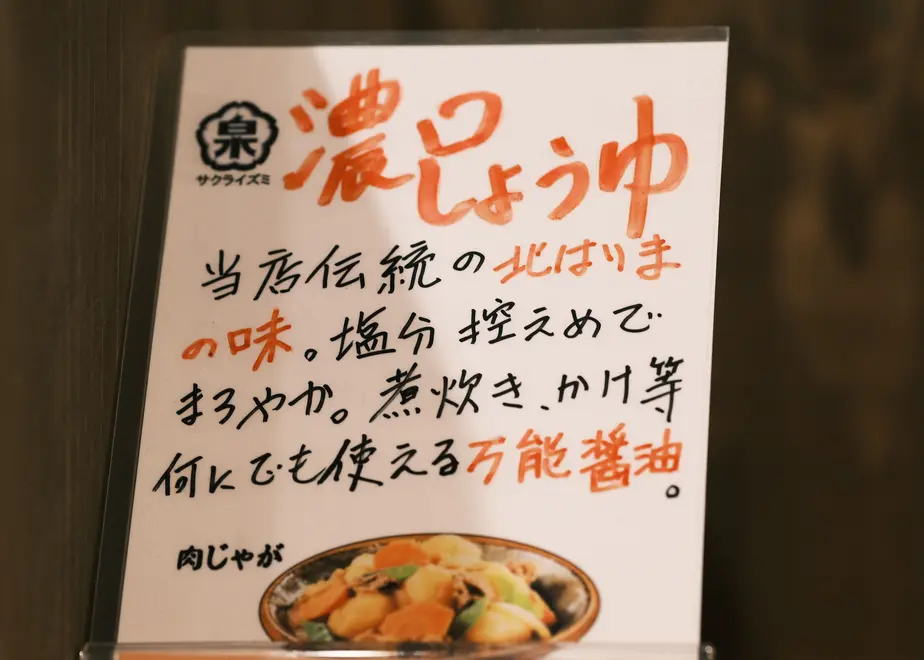 泉
サクライズミ
濃口しょうゆ
当店伝統の北はりま
の味。塩分控えめで
まろやか。煮炊き、かけ等
何にでも使える万能醤油。
肉じゃが